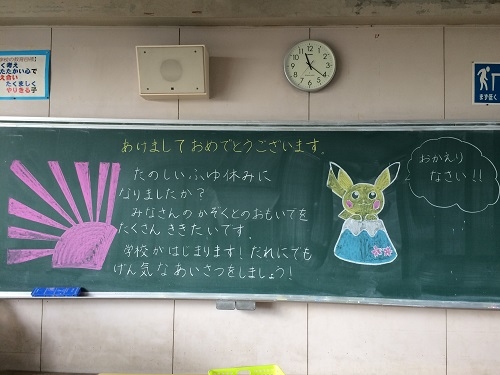 く考え
たたかい心で
え合い
たくましく
やりきる子
あけましておめでとうございます。
たのしいふゆ休みに
なりましたか？
みなさんのかぞくとのおもいでを
たくさんききたいです。
学校がはじまります！だれにでも
げん気なあいさつをしましょう！
おかえり
なさい!!